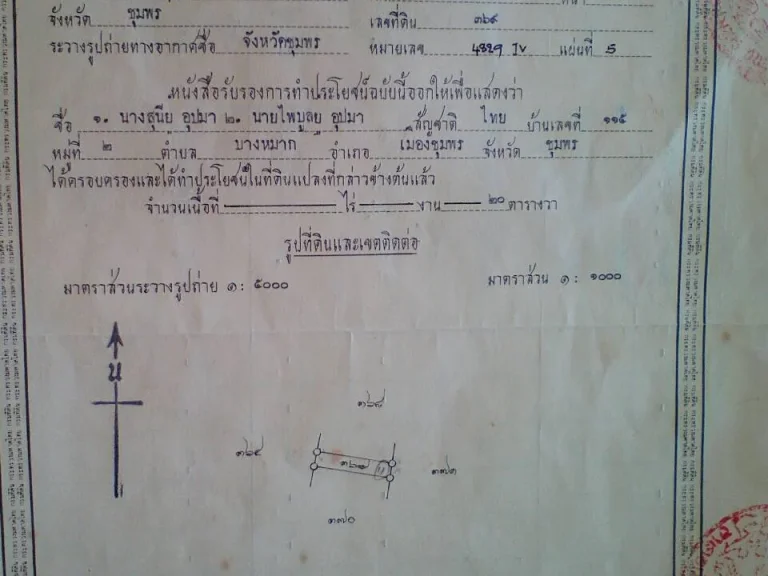 จังหวัด ชุมพร เลขที่ดิน ๓๖๙
ระวางรูปถ่ายทางอากาศชื่อ จังหวัดชุมพร หมายเลข 4829 IV แผ่นที่ 5
หนังสือรับรองการทำประโยชน์ฉบับนี้ออกให้เพื่อแสดงว่า
ชื่อ ๑. นางสุนีย์ อุปมา ๒. นายไพบูลย์ อุปมา สัญชาติ ไทย บ้านเลขที่ ๑๑๕
หมู่ที่ ๒ ตำบล บางหมาก อำเภอ เมืองชุมพร จังหวัด ชุมพร
ได้ครอบครองและได้ทำประโยชน์ในที่ดินแปลงที่กล่าวข้างต้นแล้ว
จำนวนเนื้อที่ ไร่ งาน ๒๐ ตารางวา
รูปที่ดินและเขตติดต่อ
มาตราส่วนระวางรูปถ่าย ๑: ๕๐๐๐ มาตราส่วน ๑: ๑๐๐๐
น
๓๖๘
๓๖๕ ๓๖๙ ๓๗๑
๓๗๐